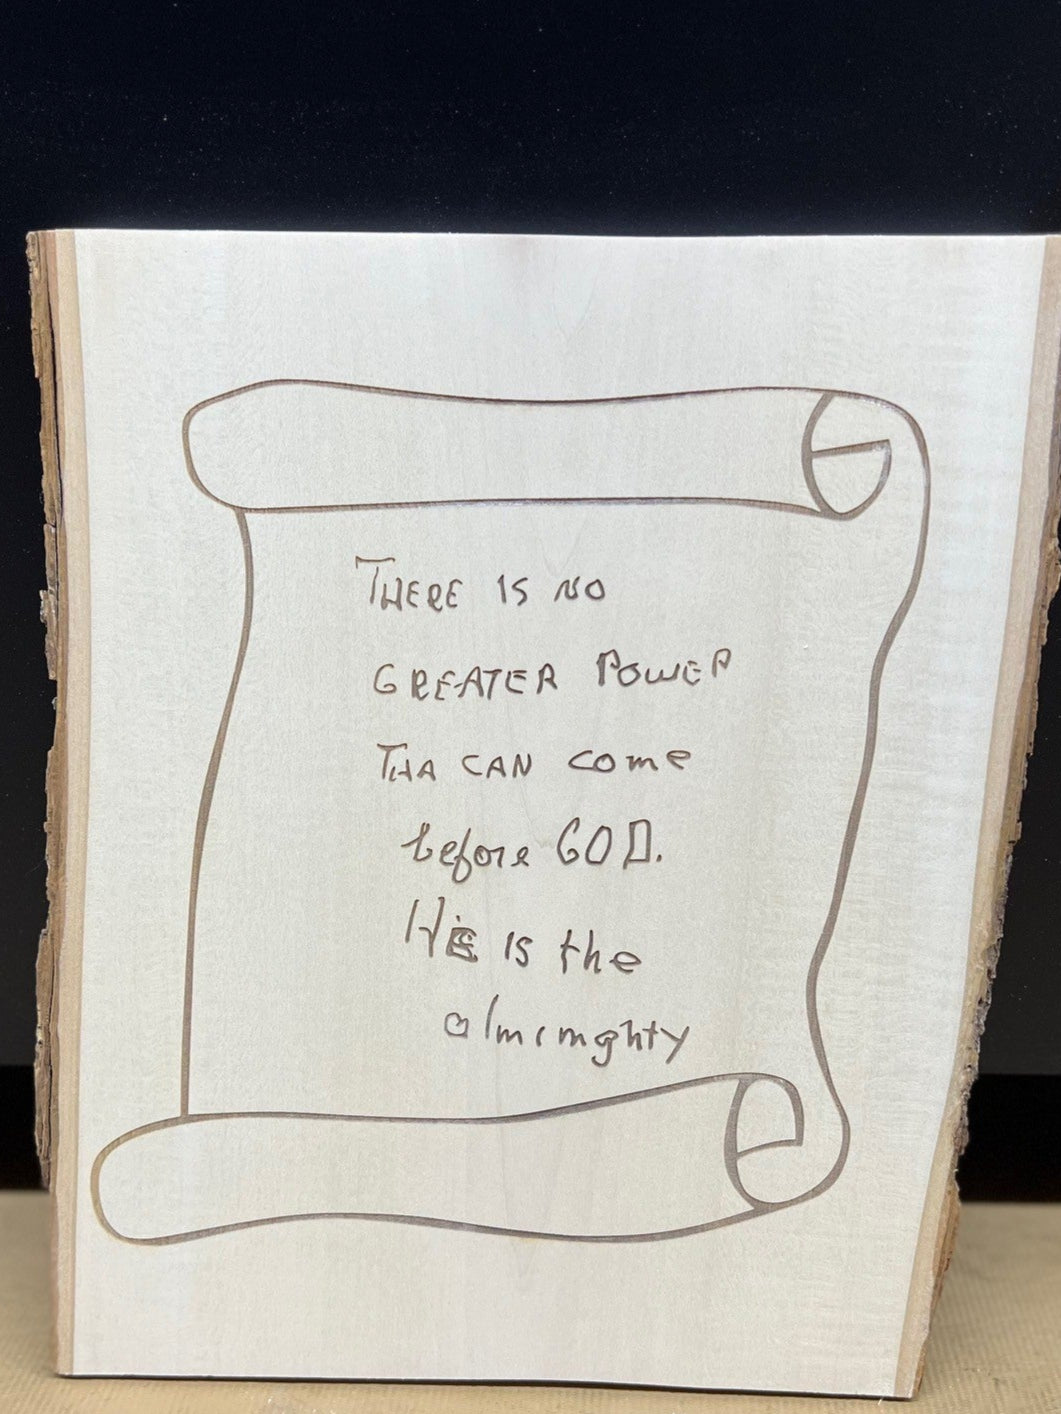 THERE IS NO
GREATER POWER
THA CAN come
before GOD.
HE IS the
almimghty